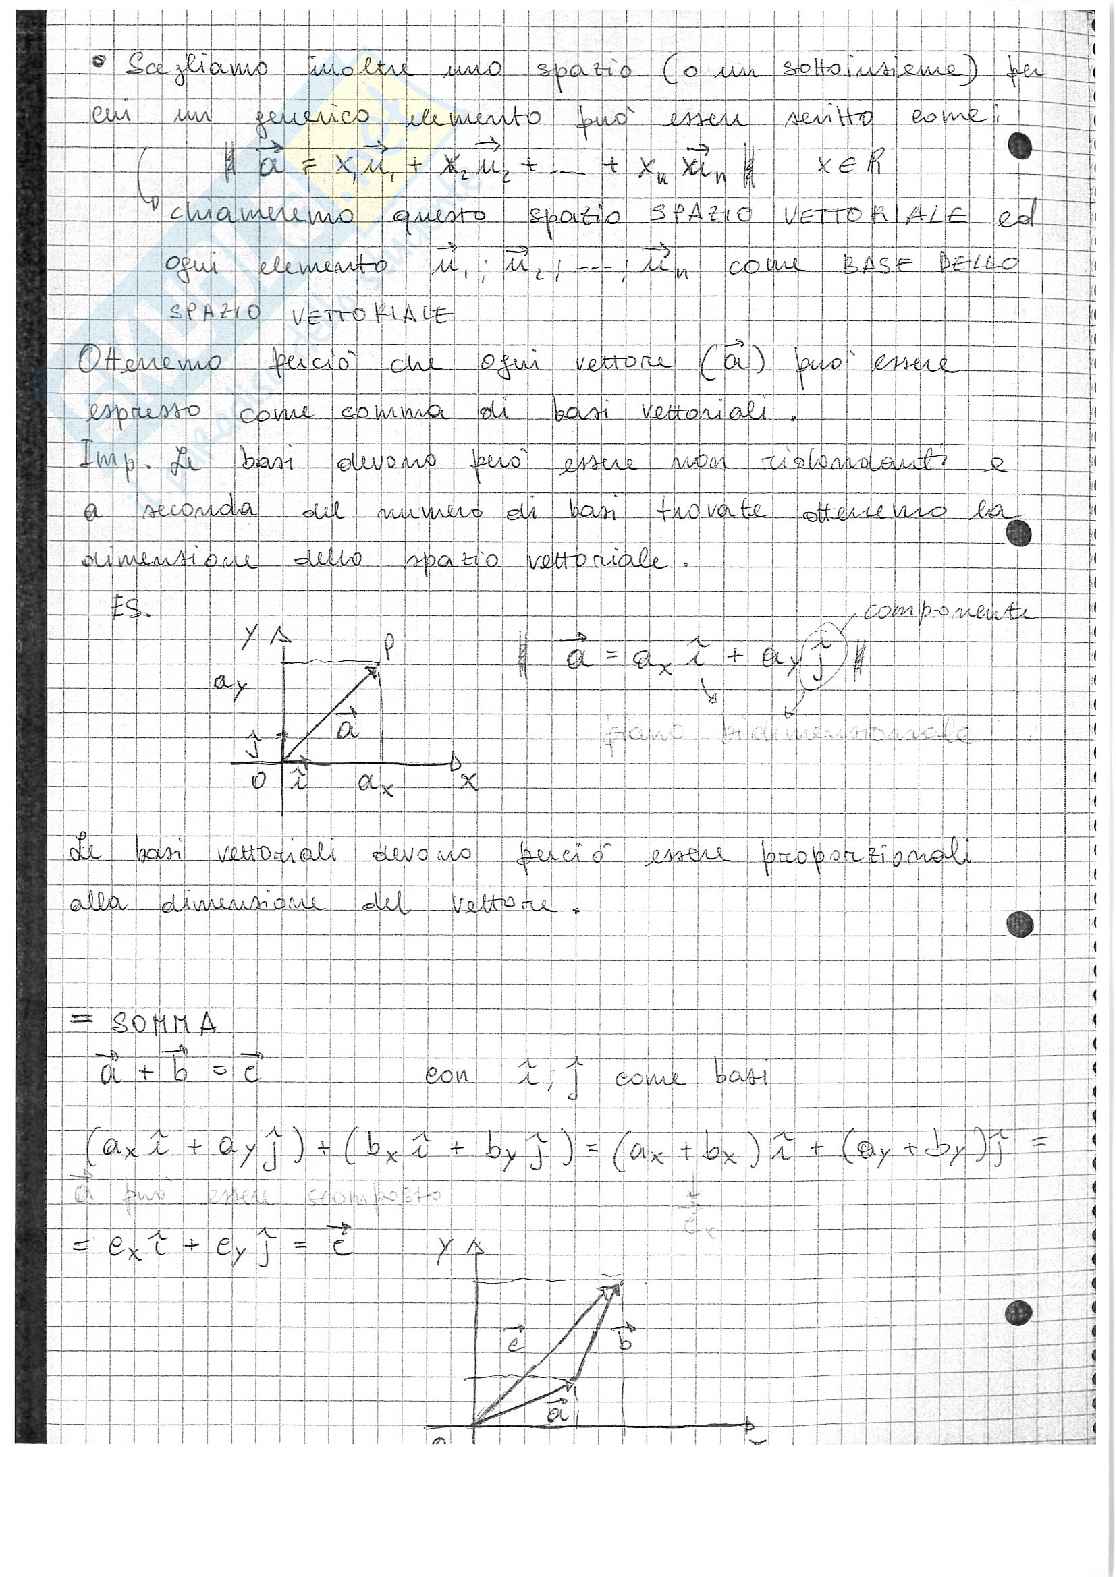 • Scegliamo inoltre uno spazio (o un sottoinsieme) per
cui un generico elemento può essere scritto come:
|| a⃗ = x₁u⃗₁ + x₂u⃗₂ + ... + xₙu⃗ₙ || x ∈ R
chiameremo questo spazio SPAZIO VETTORIALE ed
ogni elemento u⃗₁; u⃗₂; ...; u⃗ₙ come BASE DELLO
SPAZIO VETTORIALE
Otteremo perciò che ogni vettore (a⃗) può essere
espresso come somma di basi vettoriali.
Imp. Le basi devono però essere non ridondanti e
a seconda del numero di basi trovate otteremo la
dimensione dello spazio vettoriale.
ES.
componente
y P
|| a⃗ = aₓ î + a_y ĵ ||
a_y
a⃗
piano bidimensionale
ĵ
O î aₓ x
Le basi vettoriali devono perciò essere proporzionali
alla dimensione del vettore.
= SOMMA
a⃗ + b⃗ = c⃗ con î, ĵ come basi
(aₓ î + a_y ĵ) + (bₓ î + b_y ĵ) = (aₓ + bₓ) î + (a_y + b_y) ĵ =
a⃗ può essere scomposto
cₓ
= cₓ î + c_y ĵ = c⃗
y
c⃗ b⃗
a⃗